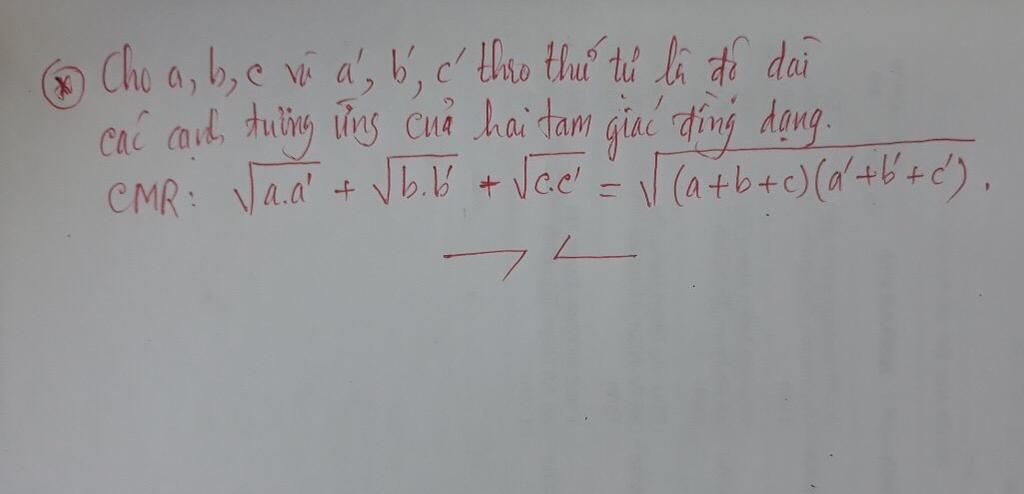 * Cho a, b, c và a', b', c' theo thứ tự là độ dài
các cạnh tương ứng của hai tam giác đồng dạng.
CMR: √a.a' + √b.b' + √c.c' = √(a+b+c)(a'+b'+c').